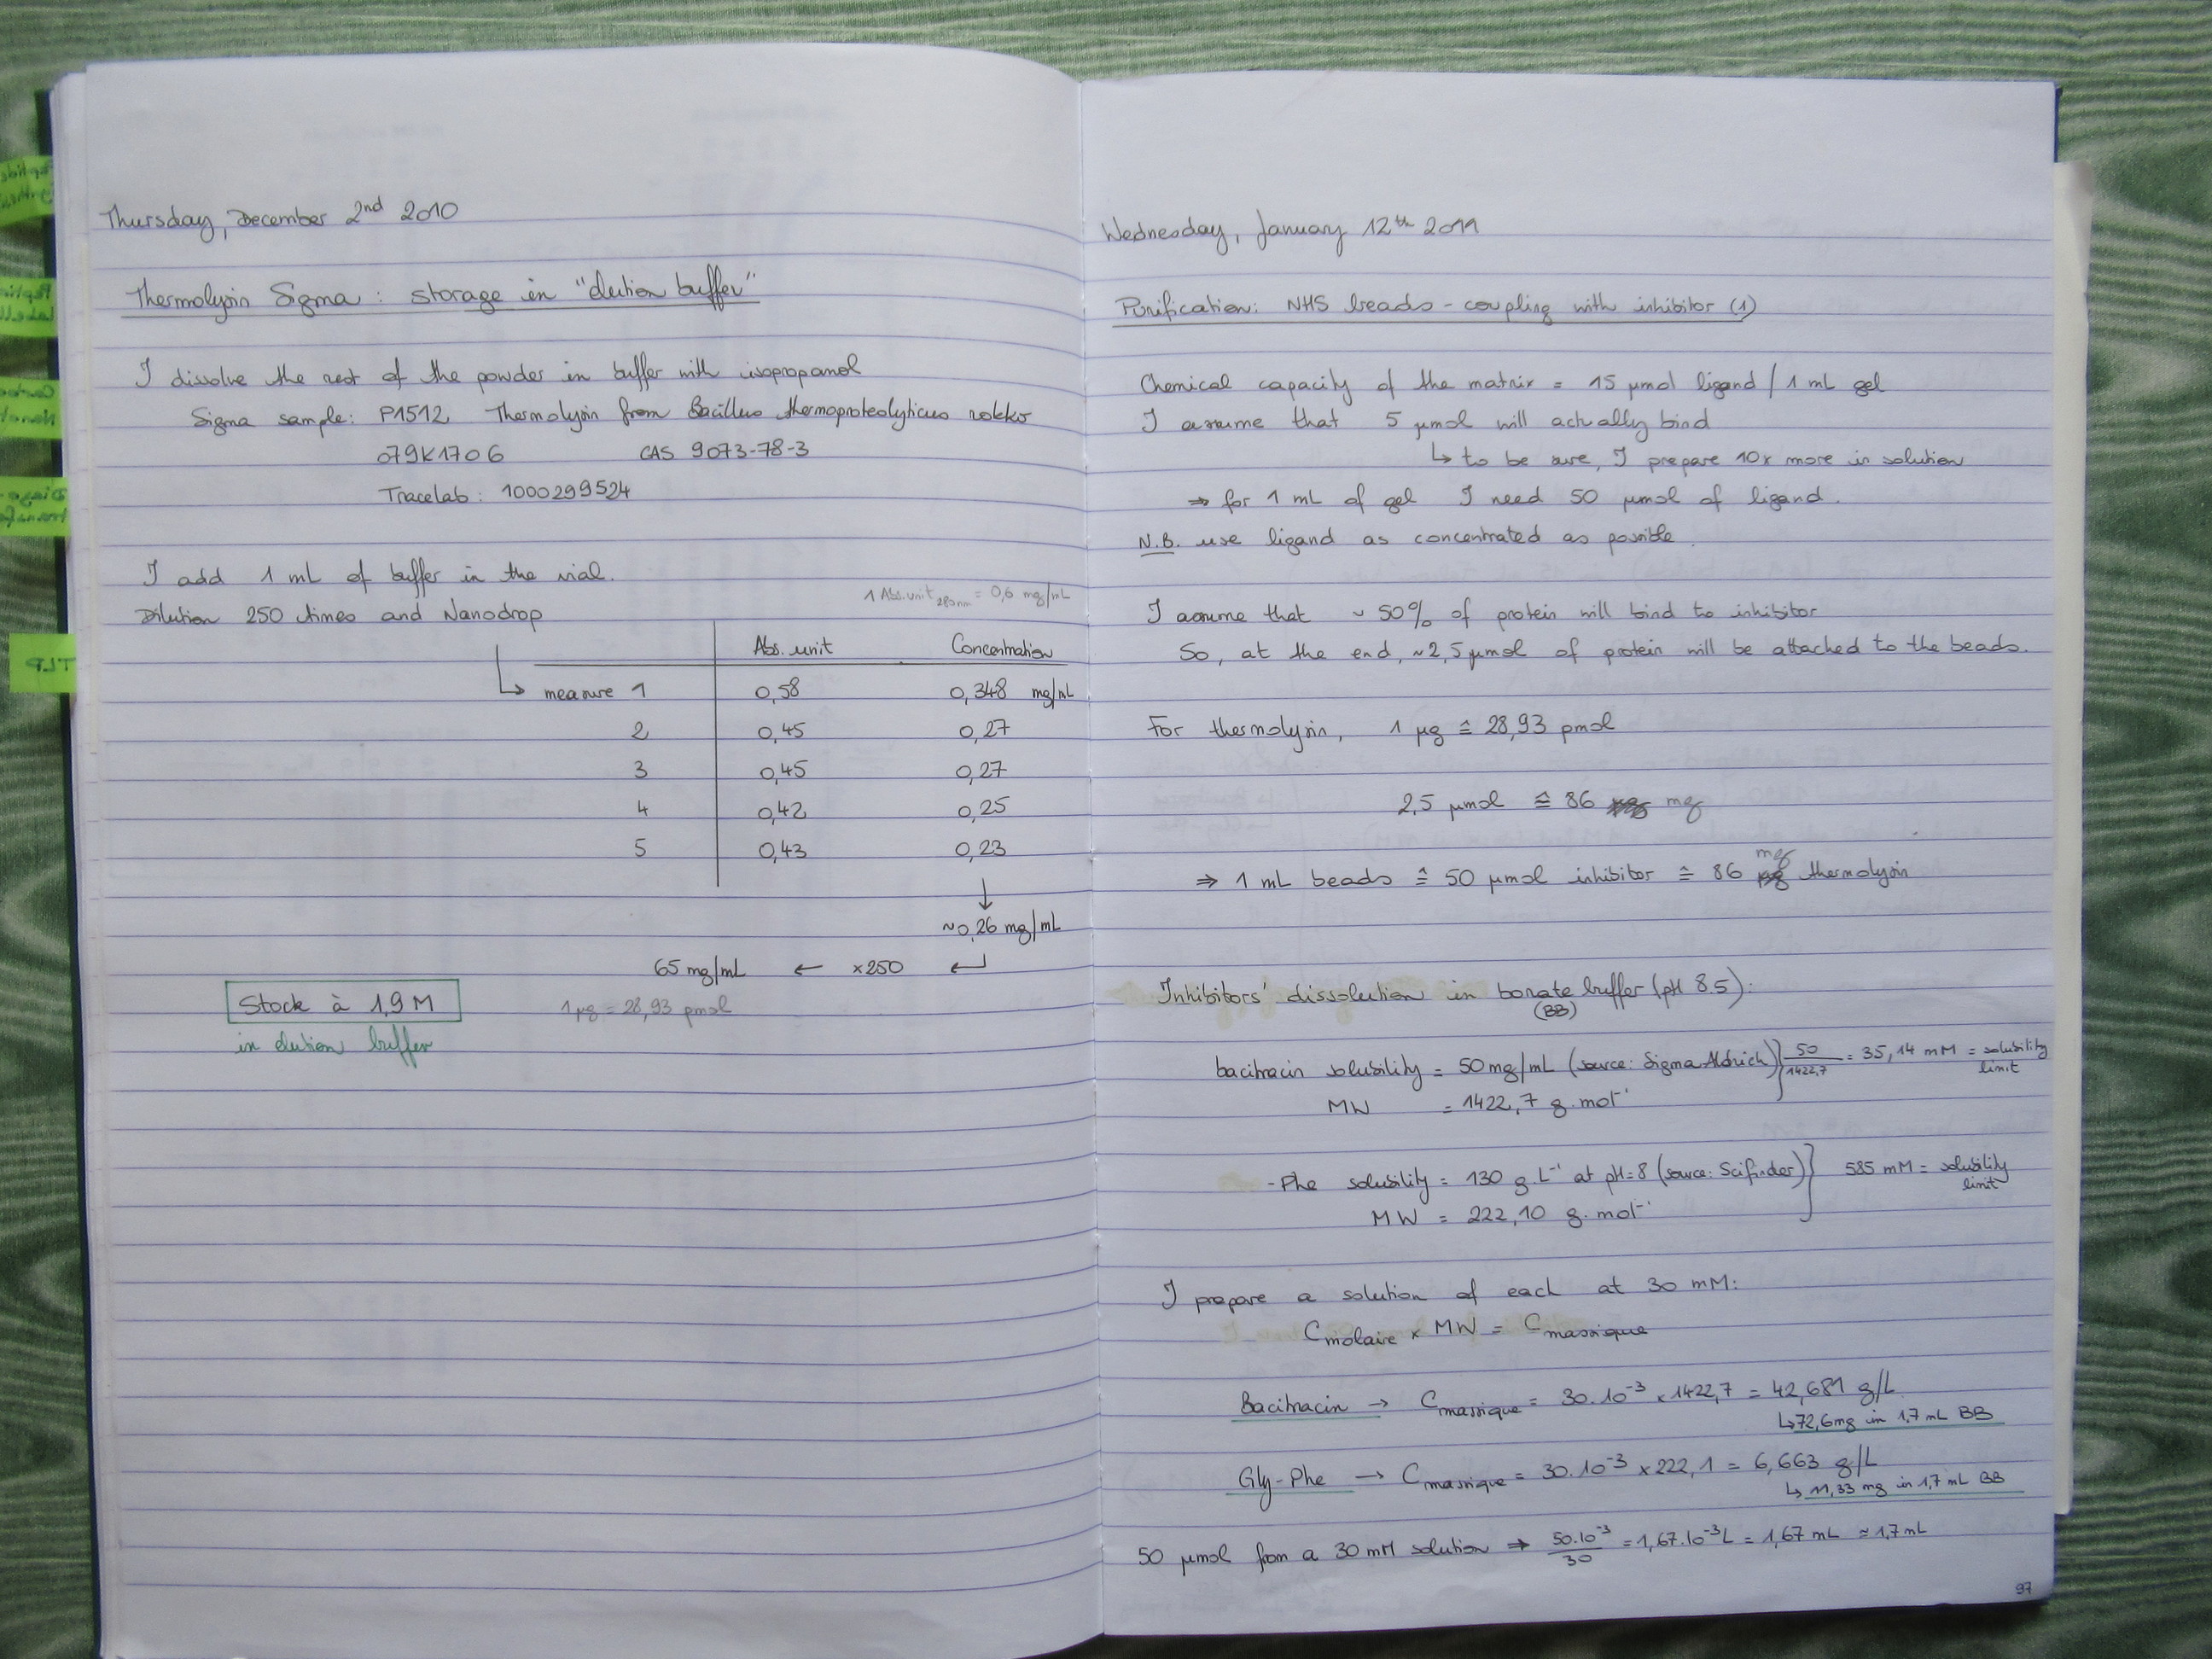 Thursday, December 2nd 2010
Thermolysin Sigma : storage in "elution buffer"
I dissolve the rest of the powder in buffer with isopropanol
Sigma sample: P1512 Thermolysin from Bacillus thermoproteolyticus rokko
079K1706 CAS 9073-78-3
Tracelab : 1000299524
I add 1 mL of buffer in the vial.
1 Abs.unit 280nm = 0,6 mg/mL
Dilution 250 times and Nanodrop
Abs. unit Concentration
↳ measure 1 0,58 0,348 mg/mL
2 0,45 0,27
3 0,45 0,27
4 0,42 0,25
5 0,43 0,23
↓
~0,26 mg/mL
65 mg/mL ← ×250 ↵
Stock à 1,9 M
1 µg = 28,93 pmol
in elution buffer
TLP
Wednesday, January 12th 2011
Purification: NHS beads - coupling with inhibitor (1)
Chemical capacity of the matrix = 15 µmol ligand / 1 mL gel
I assume that 5 µmol will actually bind
↳ to be sure, I prepare 10x more in solution
⇒ for 1 mL of gel I need 50 µmol of ligand.
N.B. use ligand as concentrated as possible.
I assume that ~ 50% of protein will bind to inhibitor
So, at the end, ~2,5 µmol of protein will be attached to the beads.
For thermolysin, 1 µg ≙ 28,93 pmol
2,5 µmol ≙ 86 mg
⇒ 1 mL beads ≙ 50 µmol inhibitor ≙ 86 mg thermolysin
Inhibitors' dissolution in borate buffer (pH 8.5):
(BB)
bacitracin solubility = 50 mg/mL (source: Sigma Aldrich) } 50/1422,7 = 35,14 mM = solubility limit
MW = 1422,7 g.mol⁻¹
-Phe solubility = 130 g.L⁻¹ at pH=8 (source: Scifinder) } 585 mM = solubility limit
MW = 222,10 g.mol⁻¹
I prepare a solution of each at 30 mM:
Cmolaire × MW = Cmassique
Bacitracin → Cmassique = 30.10⁻³ × 1422,7 = 42,681 g/L
↳ 72,6mg in 1,7 mL BB
Gly-Phe → Cmassique = 30.10⁻³ × 222,1 = 6,663 g/L
↳ 11,33 mg in 1,7 mL BB
50 µmol from a 30 mM solution ⇒ 50.10⁻³/30 = 1,67.10⁻³L = 1,67 mL ≈ 1,7 mL
97